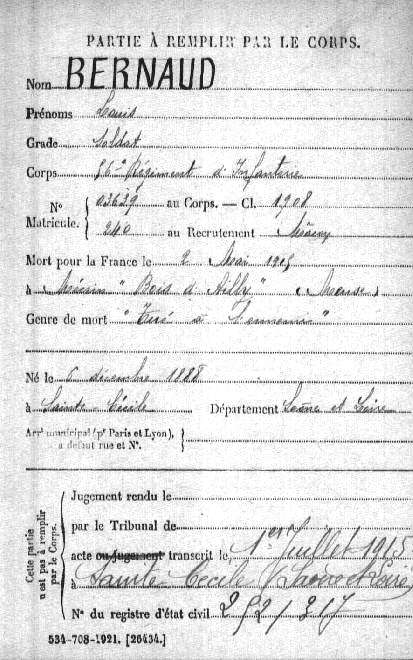 PARTIE À REMPLIR PAR LE CORPS.
Nom BERNAUD
Prénoms Louis
Grade Soldat
Corps 56e Régiment d'Infanterie
N° Matricule. 03639 au Corps. — Cl. 1908
240 au Recrutement Mâcon
Mort pour la France le 2 Mai 1915
à "Bois d'Ailly" (Meuse)
Genre de mort "Tué à l'ennemi"
Né le 6 décembre 1888
à Sainte-Cécile Département Saône et Loire
Arrt municipal (pr Paris et Lyon),
à défaut rue et N°.
Cette partie n'est pas à remplir par le Corps
Jugement rendu le
par le Tribunal de
acte ou jugement transcrit le 1er Juillet 1915
à Sainte Cécile (Saône et Loire)
N° du registre d'état civil 252/217
534-708-1921. [26434.]